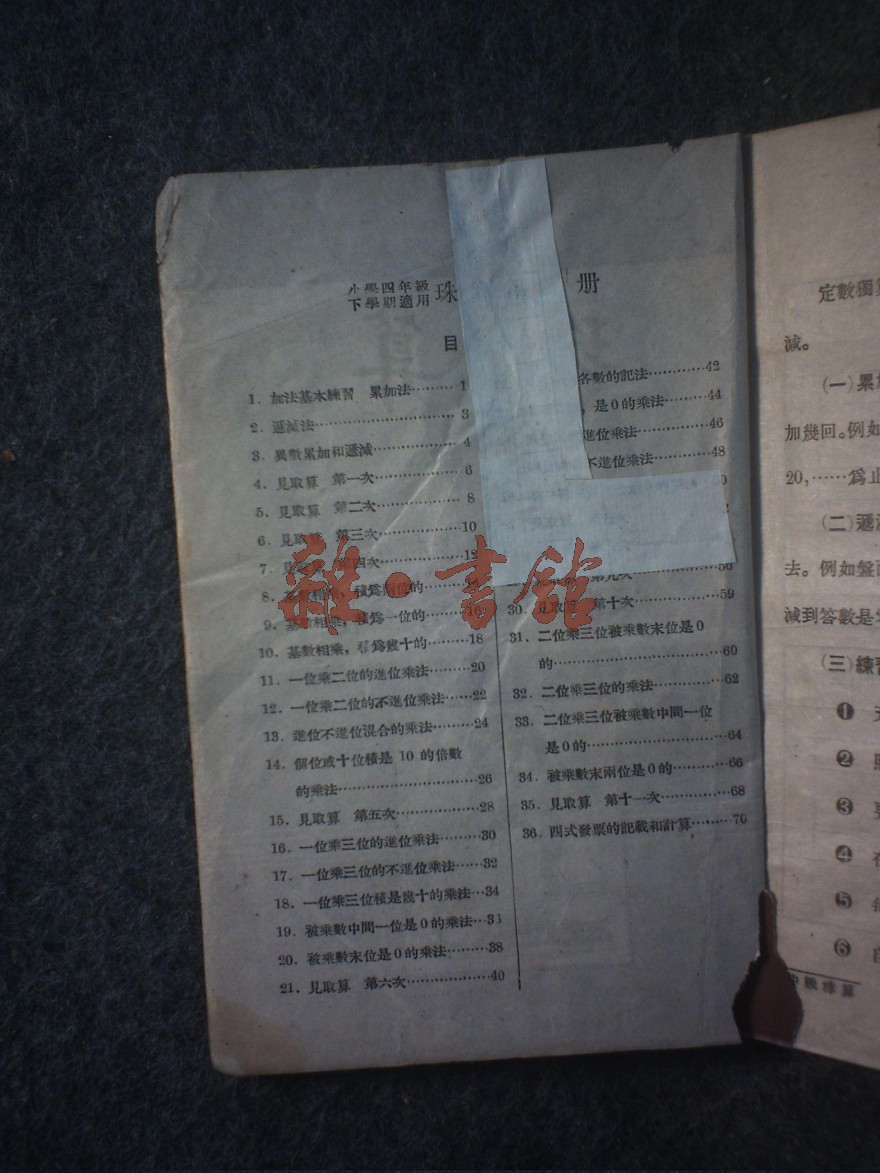 小學四年級
下學期適用 珠 册
目
1. 加法基本練習 累加法………1
2. 遞減法…………………3
3. 異數累加和遞減…………4
4. 見取算 第一次…………6
5. 見取算 第二次…………8
6. 見取算 第三次…………10
7. 見 第四次…………12
8. 基數相乘，積爲兩位的
9. 基數相乘，積爲一位的……16
10. 基數相乘，積爲幾十的……18
11. 一位乘二位的進位乘法……20
12. 一位乘二位的不進位乘法……22
13. 進位不進位混合的乘法……24
14. 個位或十位積是 10 的倍數
的乘法…………………26
15. 見取算 第五次…………28
16. 一位乘三位的進位乘法……30
17. 一位乘三位的不進位乘法……32
18. 一位乘三位積是幾十的乘法…34
19. 被乘數中間一位是0的乘法…
20. 被乘數末位是0的乘法………38
21. 見取算 第六次…………40
各數的記法…………42
是0的乘法………44
進位乘法………46
不進位乘法………48
第九次…………56
30. 見取算 第十次…………59
31. 二位乘三位被乘數末位是0
的…………………60
32. 二位乘三位的乘法………62
33. 二位乘三位被乘數中間一位
是0的………………64
34. 被乘數末兩位是0的………66
35. 見取算 第十一次…………68
36. 四式發票的記載和計算………70
雜·書館
定數獨
減。
(一)累
加幾回。例如
20,……爲止
(二)遞
去。例如盤
減到答數是
(三)練
❶
❷
❸
❹
❺
❻
中級珠算